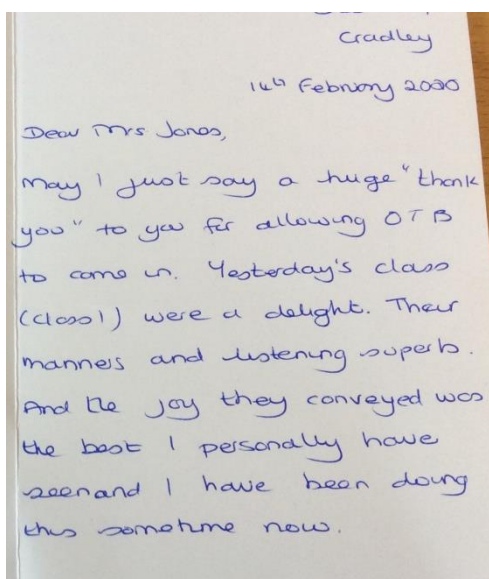 Cradley
14th February 2020
Dear Mrs Jones,
May I just say a huge "thank
you" to you for allowing OTB
to come in. Yesterday's class
(class1) were a delight. Their
manners and listening superb.
And the joy they conveyed was
the best I personally have
seen and I have been doing
this sometime now.